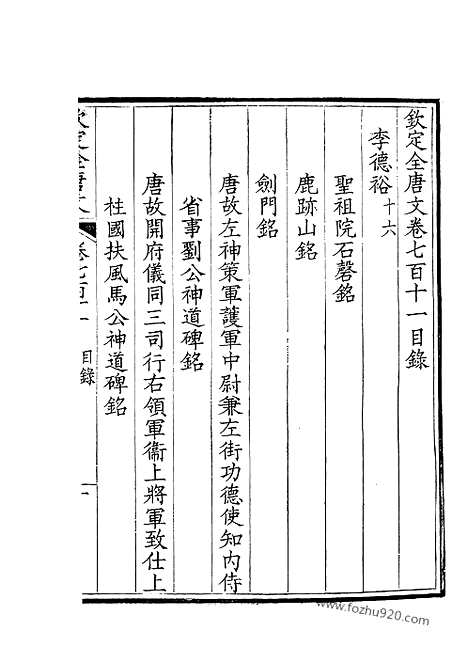 欽定全唐文卷七百十一目錄
李德裕十六
聖祖院石磬銘
鹿跡山銘
劍門銘
唐故左神策軍護軍中尉兼左街功德使知內侍
省事劉公神道碑銘
唐故開府儀同三司行右領軍衞上將軍致仕上
柱國扶風馬公神道碑銘
欽定全唐文 卷七百十一 目錄 一
www.fozhu920.com